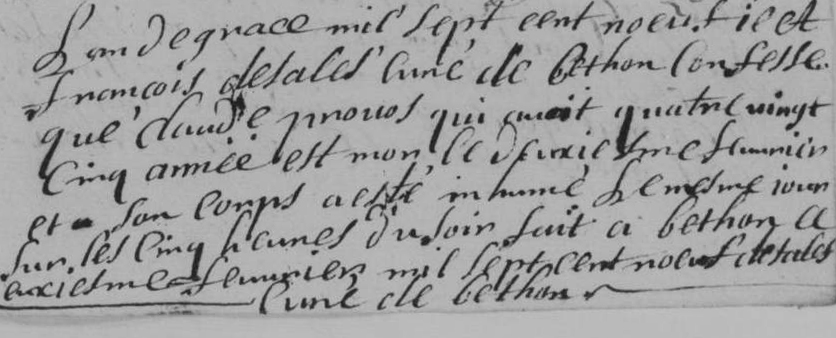 Lan de grace mil sept cent noeuf ie et
francois desales curé de bethon Confesse
que claude prouos qui auoit quatre vingt
Cinq année est mor le deuxiesme feurier
et son corps a esté inhumé le mesme iour
sur les Cinq heures du soir fait a bethon ce
euxiesme feurier mil sept cent noeuf desales
Curé de bethon